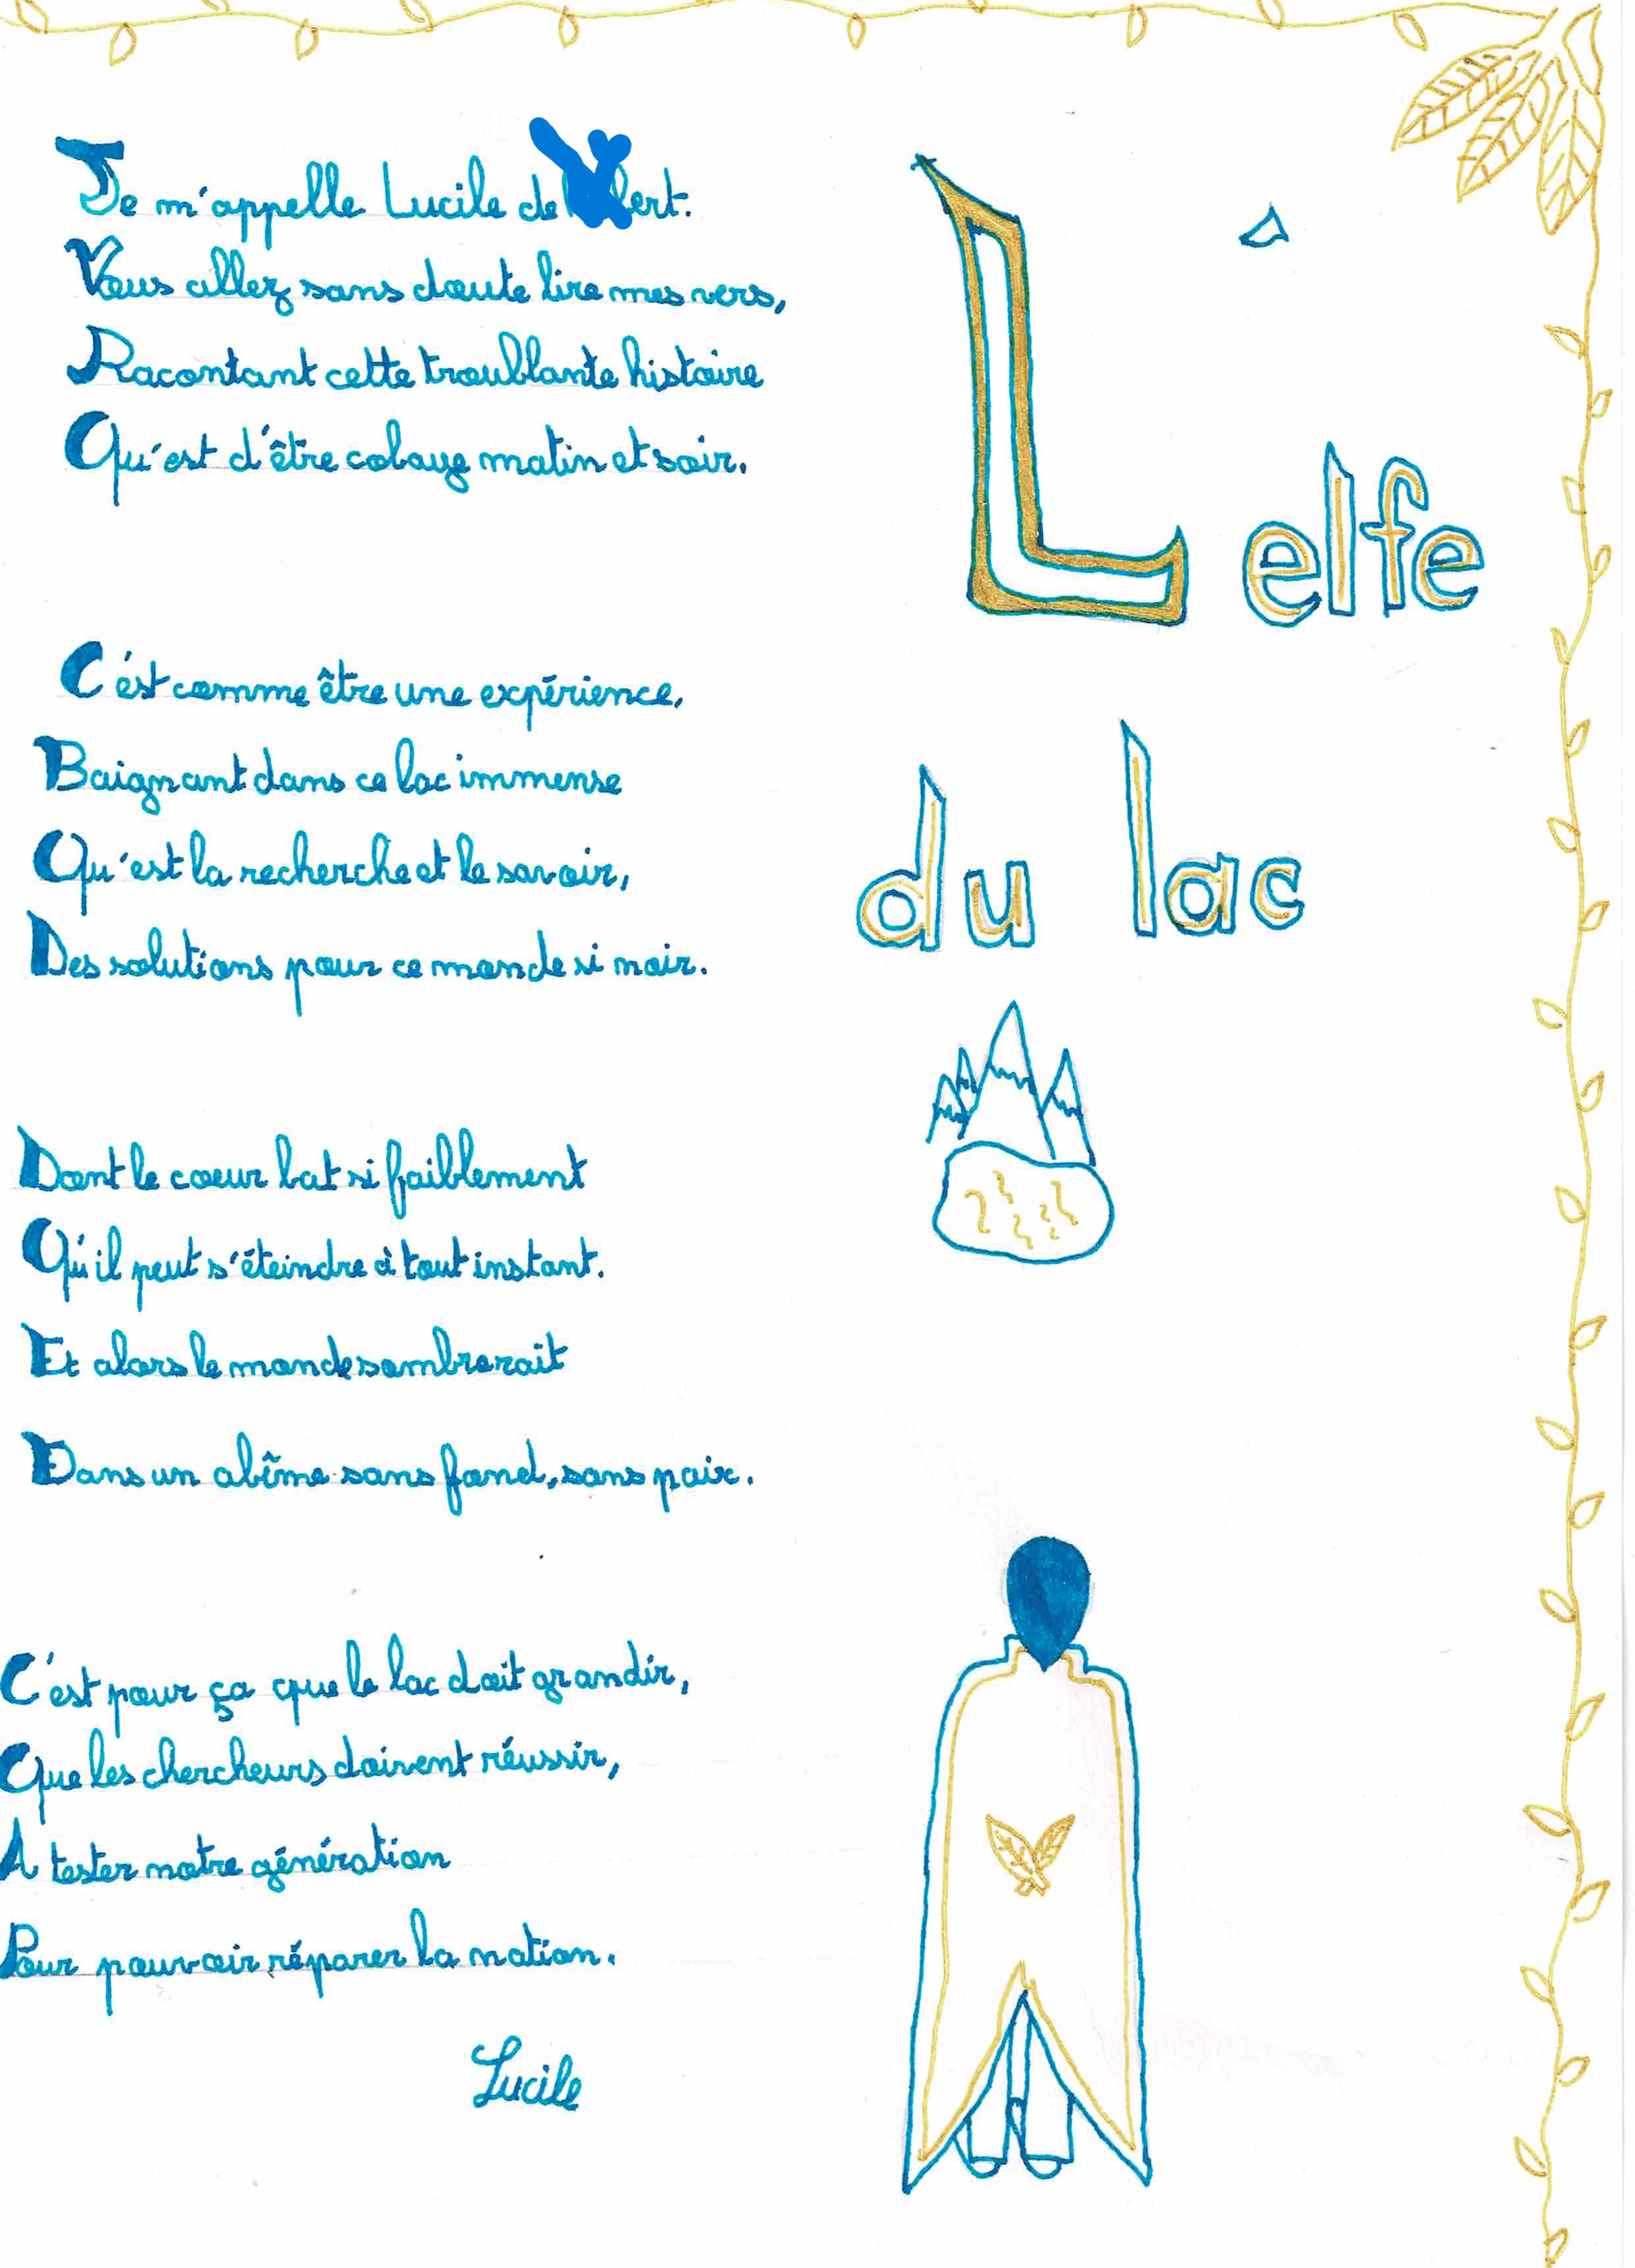 Je m'appelle Lucile de
Vous allez sans doute lire mes vers,
Racontant cette troublante histoire
Qu'est d'être cobaye matin et soir.
C'est comme être une expérience,
Baignant dans ce lac immense
Qu'est la recherche et le savoir,
Des solutions pour ce monde si noir.
Dont le coeur bat si faiblement
Qu'il peut s'éteindre à tout instant.
Et alors le monde sombrerait
Dans un abîme sans fond, sans paix.
C'est pour ça que le lac doit grandir,
Que les chercheurs doivent réussir,
A tester notre génération
Pour pouvoir réparer la nation.
Lucile
L'elfe
du lac